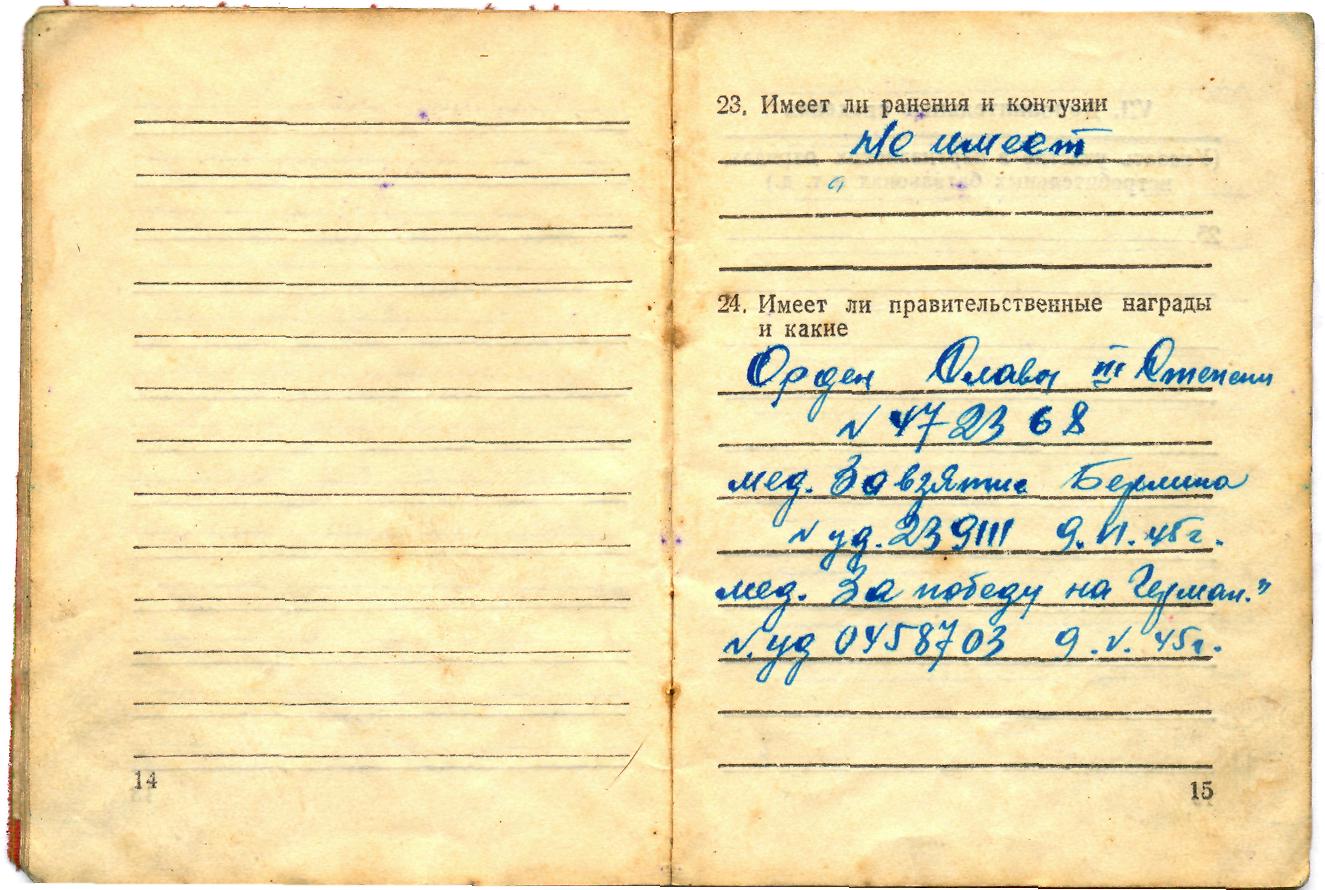 23. Имеет ли ранения и контузии
Не имеет
24. Имеет ли правительственные награды
и какие
Орден Славы III Степени
№ 472368
мед. За взятие Берлина
№ уд. 239111 9.V.45г.
мед. За победу на Герман."
№ уд 0458703 9.V.45г.
14
15